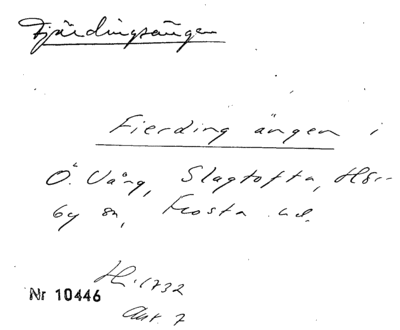 Fjärdingsängen
Fierding ängen i
Ö. Vång, Slagtofta, Hör-
by sn, Frosta hd.
H. 1732
Nr 10446
Akt. 7